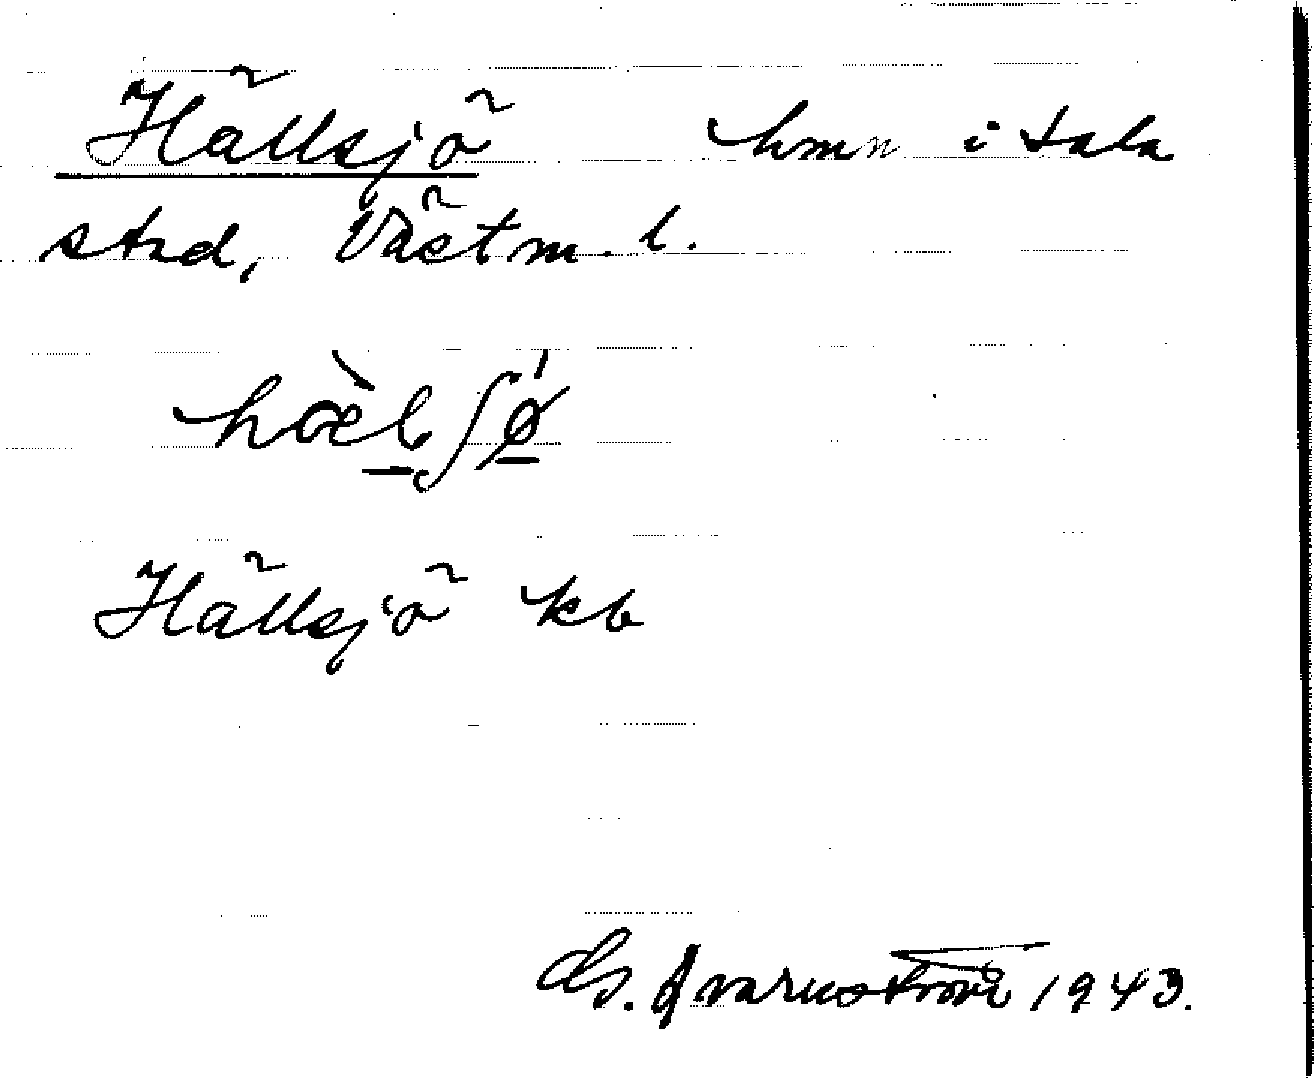 Hällsjö hmn i Sala
stad, Västm. l.
hæ̀lʃø̍
Hällsjö kb
Qvarnström 1943.